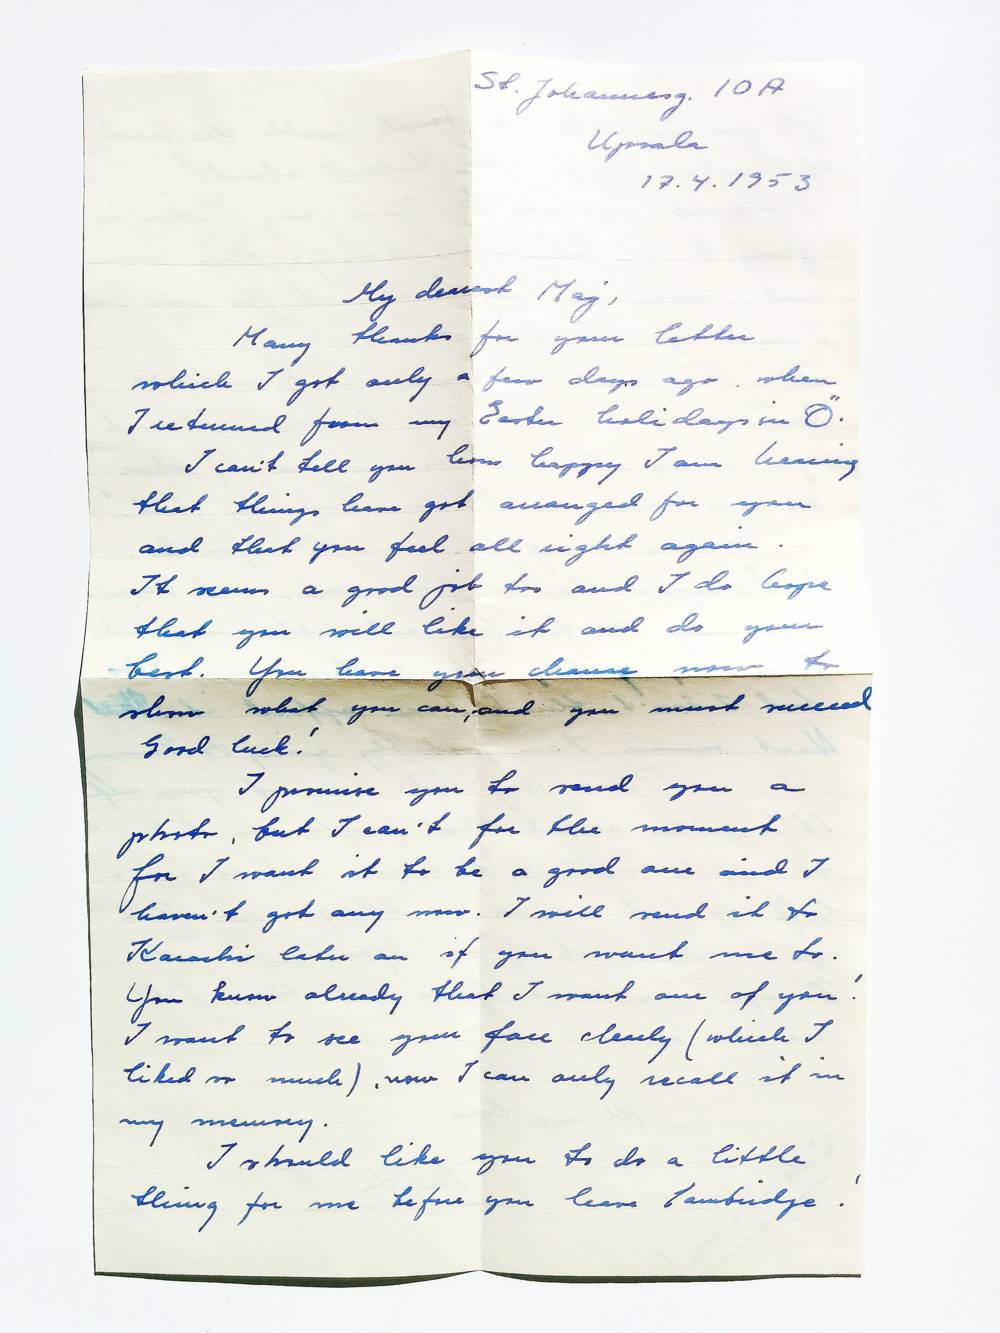 St. Johannesg. 10A
Upsala
17.4.1953
My dearest Maj,
Many thanks for your letter
which I got only a few days ago when
I returned from my Easter holidays in Ö.
I can't tell you how happy I am hearing
that things have got arranged for you
and that you feel all right again.
It seems a good job too and I do hope
that you will like it and do your
best. You have your chance now to
show what you can, and you must succeed
Good luck!
I promise you to send you a
photo, but I can't for the moment
for I want it to be a good one and I
haven't got any now. I will send it to
Karachi later on if you want me to.
You know already that I want one of you!
I want to see your face clearly (which I
liked so much), now I can only recall it in
my memory.
I should like you to do a little
thing for me before you leave Cambridge!